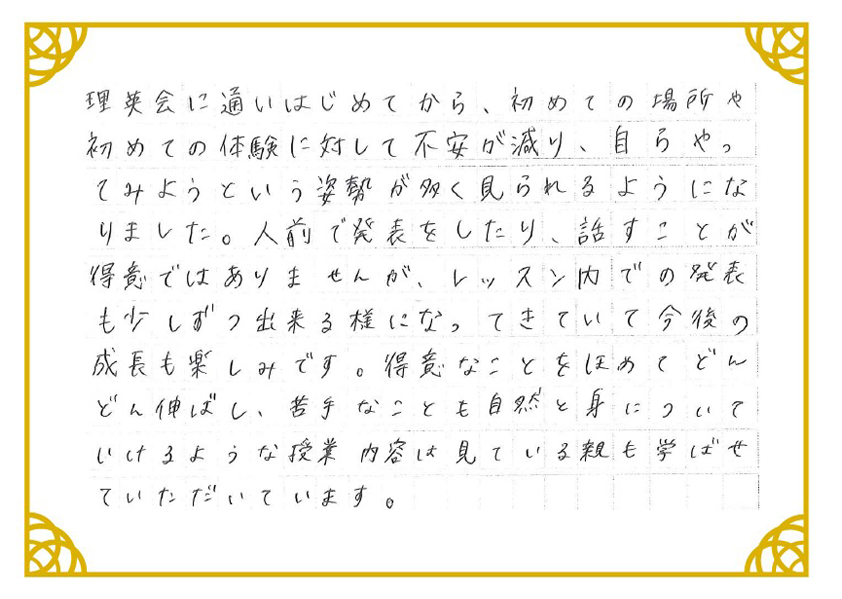 理英会に通いはじめてから、初めての場所や
初めての体験に対して不安が減り、自らやっ
てみようという姿勢が多く見られるようにな
りました。人前で発表をしたり、話すことが
得意ではありませんが、レッスン内での発表
も少しずつ出来る様になってきていて今後の
成長も楽しみです。得意なことをほめてどん
どん伸ばし、苦手なことも自然と身について
いけるような授業内容は見ている親も学ばせ
ていただいています。